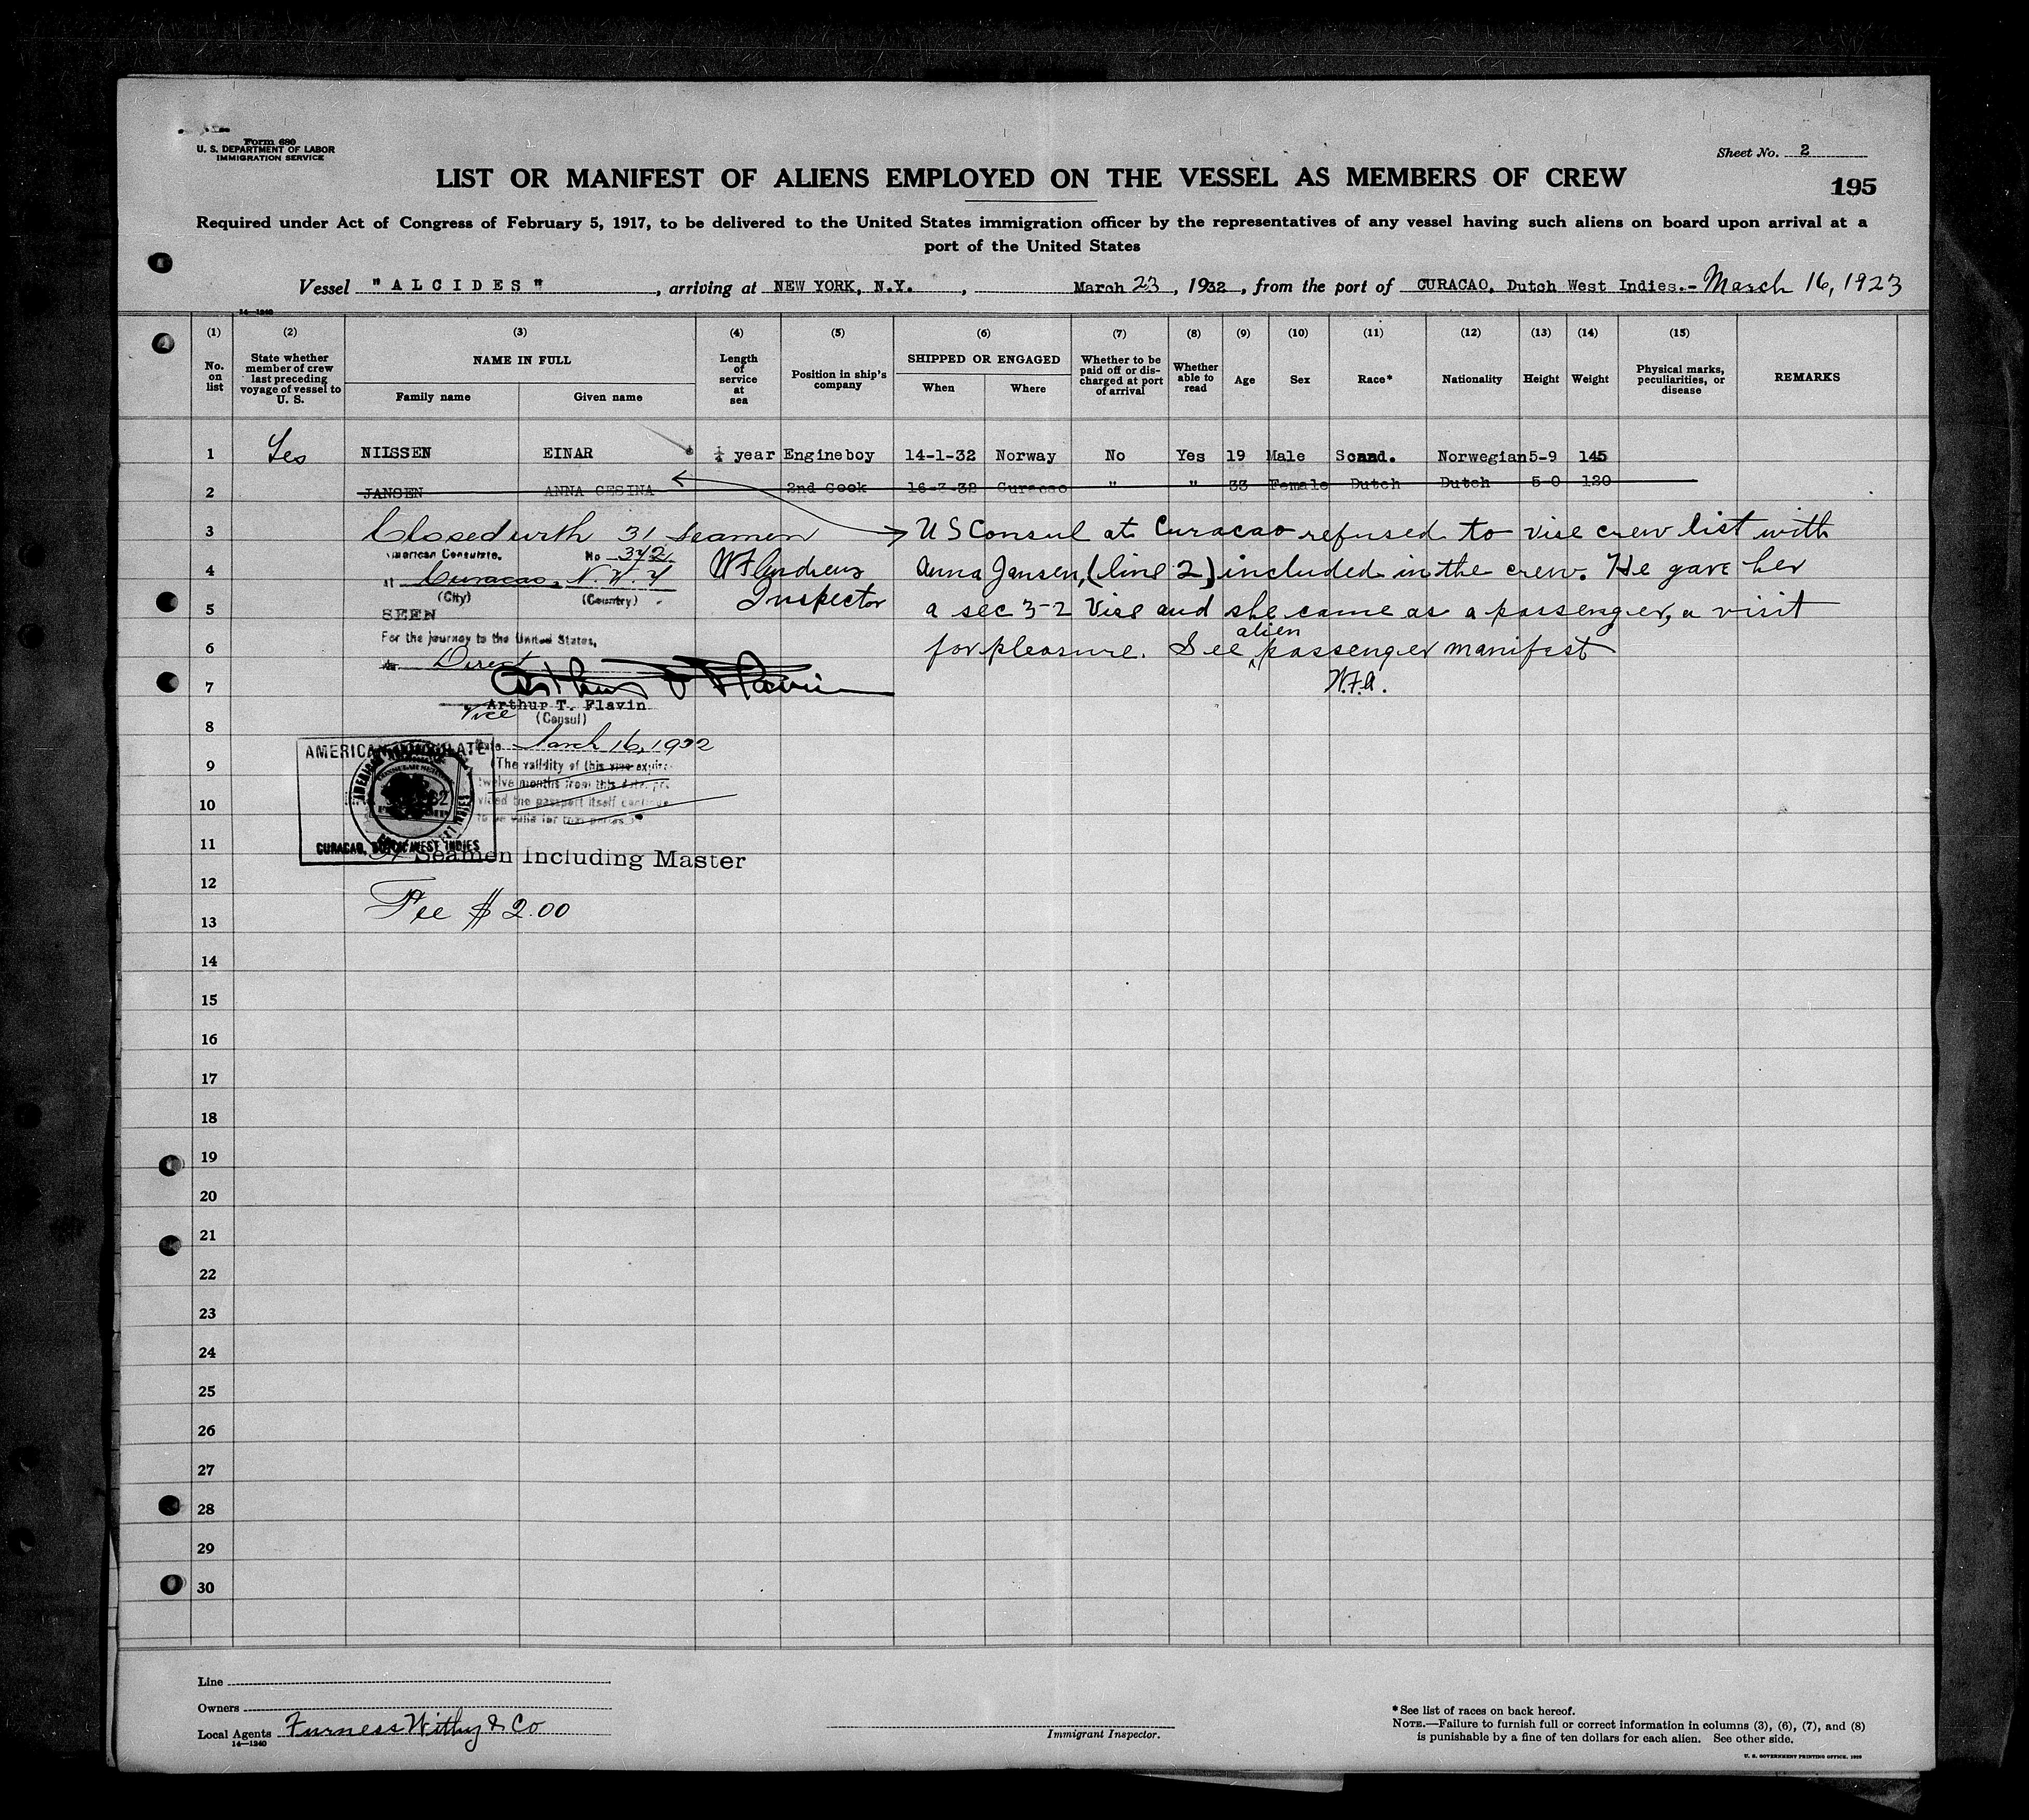 Form 680
U. S. DEPARTMENT OF LABOR
IMMIGRATION SERVICE
Sheet No. 2
LIST OR MANIFEST OF ALIENS EMPLOYED ON THE VESSEL AS MEMBERS OF CREW
195
Required under Act of Congress of February 5, 1917, to be delivered to the United States immigration officer by the representatives of any vessel having such aliens on board upon arrival at a
port of the United States
Vessel "ALCIDES", arriving at NEW YORK, N.Y., March 23, 1932, from the port of CURACAO, Dutch West Indies.- March 16, 1923
14—1240
(1) (2) (3) (4) (5) (6) (7) (8) (9) (10) (11) (12) (13) (14) (15)
No. on list
State whether member of crew last preceding voyage of vessel to U. S.
NAME IN FULL
Family name
Given name
Length of service at sea
Position in ship's company
SHIPPED OR ENGAGED
When
Where
Whether to be paid off or discharged at port of arrival
Whether able to read
Age
Sex
Race*
Nationality
Height
Weight
Physical marks, peculiarities, or disease
REMARKS
1 Yes NILSSEN EINAR ¼ year Engineboy 14-1-32 Norway No Yes 19 Male Scand. Norwegian 5-9 145
2 JANSEN ANNA GESINA 2nd Cook 16-3-32 Curacao " " 33 Female Dutch Dutch 5-0 120
3 Closed with 31 Seamen US Consul at Curacao refused to vise crew list with
American Consulate. No 372
4 W F Andrews Anna Jansen, (line 2) included in the crew. He gave her
at Curacao, N.W.I
(City) (Country)
Inspector
5 a sec 3-2 Vise and she came as a passenger, a visit
SEEN
For the journey to the United States,
6 for pleasure. See alien passenger manifest
Direct
7 W.F.A.
Arthur T. Flavin
Vice (Consul)
8
Date March 16, 1932
AMERICAN CONSULATE
9 (The validity of this vise expires
twelve months from this date, pro-
10 vided the passport itself continues
to be valid for that period.)
11
CURACAO, DUTCH WEST INDIES
Seamen Including Master
12
Fee $2.00
13
14
15
16
17
18
19
20
21
22
23
24
25
26
27
28
29
30
Line
Owners
Local Agents Furness Withy & Co
14—1240
Immigrant Inspector.
* See list of races on back hereof.
NOTE.—Failure to furnish full or correct information in columns (3), (6), (7), and (8)
is punishable by a fine of ten dollars for each alien. See other side.
U. S. GOVERNMENT PRINTING OFFICE